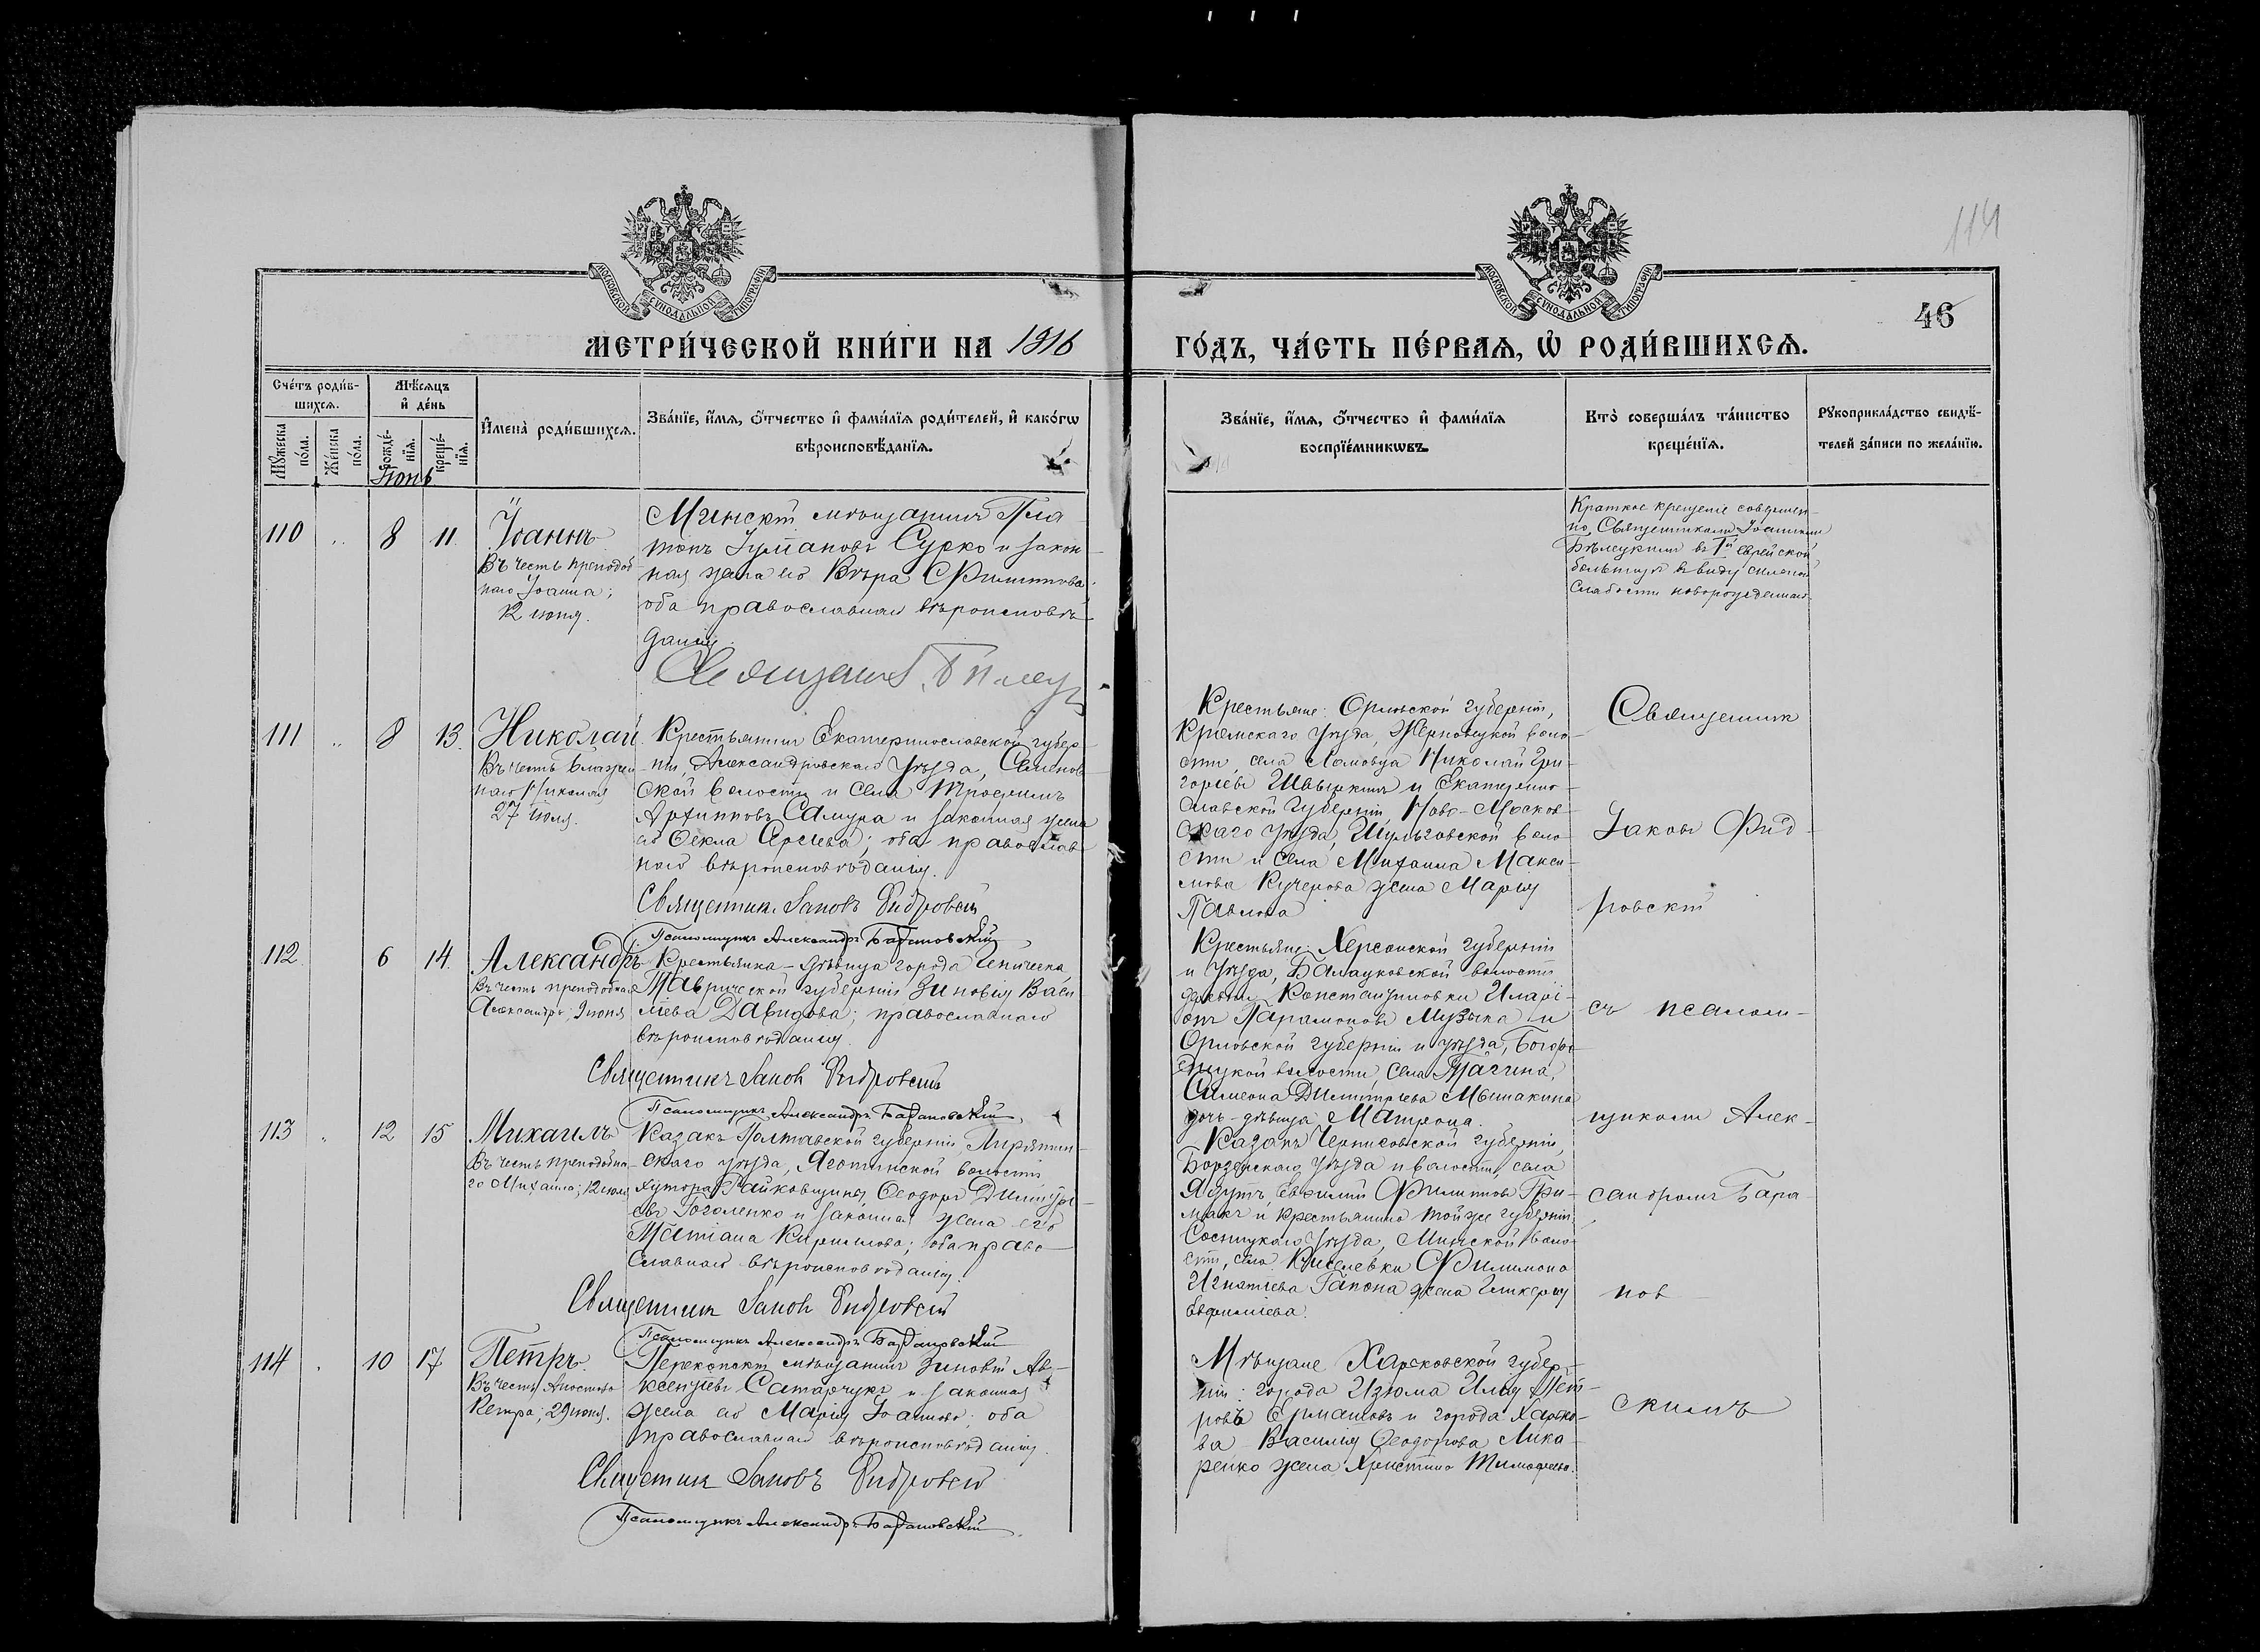 114
46
МОСКОВСКОЙ СѴНОДАЛЬНОЙ ТИПОГРАФІИ
МОСКОВСКОЙ СѴНОДАЛЬНОЙ ТИПОГРАФІИ
МЕТРИ́ЧЕСКОЙ КНИ́ГИ НА 1916
ГО́ДЪ, ЧА́СТЬ ПЕ́РВАЯ, Ѡ РОДИ́ВШИХСЯ.
Сче́тъ роди́в-
шихся.
Мѣ́сяцъ
и де́нь
Мꙋжеска по́ла.
Же́нска по́ла.
рожде́-нїя.
креще́-нїя.
Имена̀ роди́вшихся.
Зва́нїе, и́мя, ѻ́тчество и фами́лїя роди́телей, и како́гѡ
вѣроисповѣ́данїя.
Зва́нїе, и́мя, ѻ́тчество и фами́лїя
воспрїе́мникѡвъ.
Кто̀ соверша́лъ та́инство
креще́нїя.
Рꙋкоприкла́дство свидѣ́-
телей за́писи по жела́нїю.
Іюнь
110 " 8 11
Іоаннъ
Въ честь преподоб
наго Іоанна;
12 іюня.
Минскій мѣщанинъ Пла-
тонъ Суско и закон-
ная жена его Вѣра Филиппова;
оба православнаго вѣроисповѣ-
данія.
Священникъ
Краткое крещеніе совершен-
но Священникомъ Іоанномъ
Бѣлецкимъ въ 1й Еврейской
больницѣ въ виду сильной
слабости новорожденнаго.
111 " 8 13.
Николай
Въ честь блажен
наго Николая
27 іюля.
Крестьянинъ Екатеринославской губер-
ніи, Александровскаго уѣзда, Семенов-
ской волости и села Трофимъ
Архипповъ Самура и законная жена
его Ѳекла Сергіева; оба православ-
наго вѣроисповѣданія.
Священникъ Іаковъ Фидровскій
Псаломщикъ Александръ Барановскій
Крестьяне: Орловской губерніи,
Кромскаго уѣзда, Жерновецкой воло-
сти, села Ломовца Николай Гри-
горіевъ Швыркинъ и Екатерино-
славской губерніи, Ново-Москов-
скаго уѣзда, Шульговской воло-
сти и села Михаила Макси-
мова Кучерова жена Марія
Павлова
Священникъ
Іаковъ Фид-
ровскій
съ псалом-
щикомъ Алек-
сандромъ Бара-
нов-
скимъ
112 6 14.
Александръ
Въ честь преподобнаго
Александра; 9 іюня
Крестьянка-дѣвица города Геническа,
Таврической губерніи Зиновія Васи-
ліева Давидова; православнаго
вѣроисповѣданія.
Священникъ Іаковъ Фидровскій
Псаломщикъ Александръ Барановскій
Крестьяне: Херсонской губерніи
и уѣзда, Балацковской волости
деревни Константиновки Иларі-
онъ Парамоновъ Музыка и
Орловской губерніи и уѣзда, Богоро-
дицкой волости, села Тагина,
Симеона Димитріева Мошакина
дочь-дѣвица Матрона.
113 " 12 15
Михаилъ
Въ честь преподобна-
го Михаила; 12 іюля
Казакъ Полтавской губерніи, Пирятин-
скаго уѣзда, Яготинской волости,
хутора Райковщины Ѳеодоръ Димитрі-
евъ Гоголенко и законная жена его
Татіана Кириллова; оба право-
славнаго вѣроисповѣданія.
Священникъ Іаковъ Фидровскій
Псаломщикъ Александръ Барановскій
Казакъ Черниговской губерніи,
Борзенскаго уѣзда и волости, села
Ядутъ, Евфимій Филипповъ Гри-
макъ и крестьянина той же губерніи,
Сосницкаго уѣзда, Минской воло-
сти, села Киселевки Филимона
Игнатіева Гапона жена Гликерія
Евфиміева.
114 " 10 17
Петръ.
Въ честь Апостола
Петра; 29 іюня.
Перекопскій мѣщанинъ Зиновій Ав-
ксентіевъ Самарчукъ и законная
жена его Марія Іоаннова; оба
православнаго вѣроисповѣданія.
Священникъ Іаковъ Фидровскій
Псаломщикъ Александръ Барановскій.
Мѣщане Харьковской губер-
ніи: города Изюма Илія Пет-
ровъ Ермаковъ и города Харько-
ва Василія Ѳеодорова Мака-
ренко жена Христина Тимофеева.